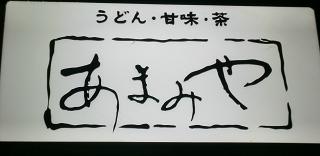 うどん・甘味・茶
あまみや